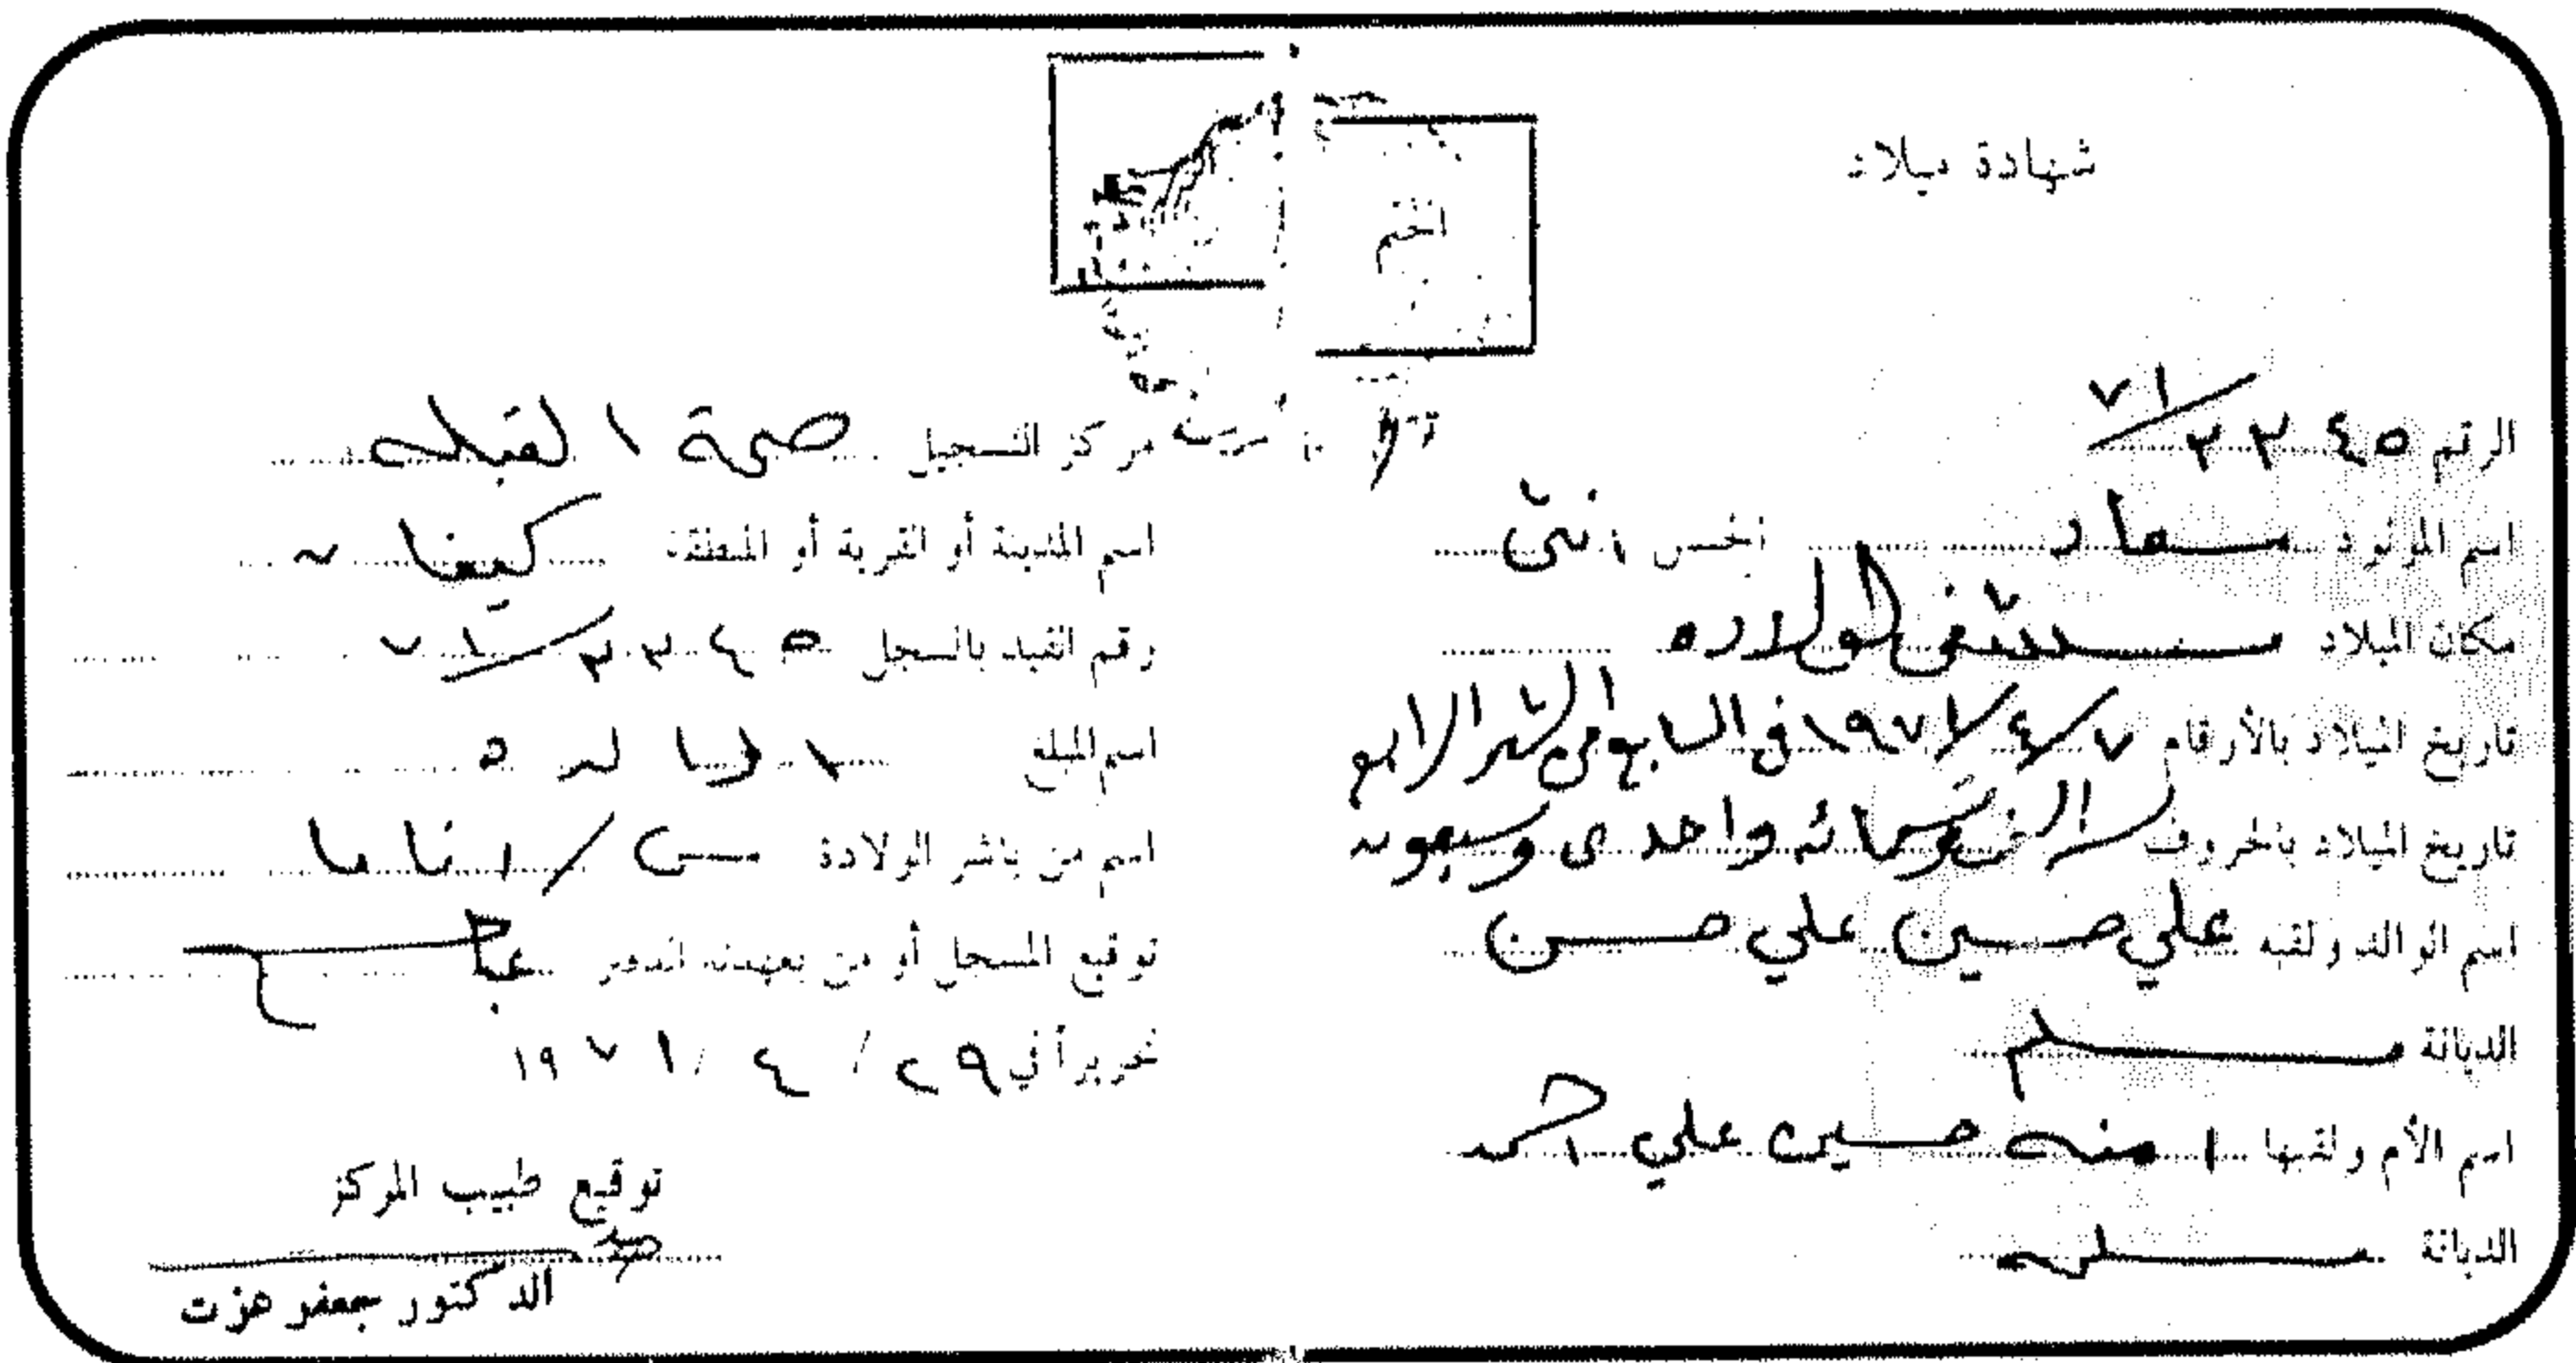 شهادة ميلاد
الختم
الرقم ٢٢٤٥/٧١
اسم المولود سعاد الجنس انثى
مكان الميلاد مستشفى الولاده
تاريخ الميلاد بالأرقام ٧/٤/١٩٧١ في السابع من الشهر الرابع
تاريخ الميلاد بالحروف الف وتسعمائه واحدى وسبعون
اسم الوالد ولقبه علي حسين علي حسن
الديانة مسلم
اسم الأم ولقبها امنه حسين علي احمد
الديانة مسلمه
مركز التسجيل صحة القبله
اسم المدينة أو القرية أو المنطقة كيفان
رقم القيد بالسجل ٢٢٤٥/٧١
اسم المبلغ الوالده
اسم من باشر الولادة
توقيع المسجل أو من بعهدته الدفتر
تحريراً في ٢٩/٤/١٩٧١
توقيع طبيب المركز
الدكتور جعفر عزت